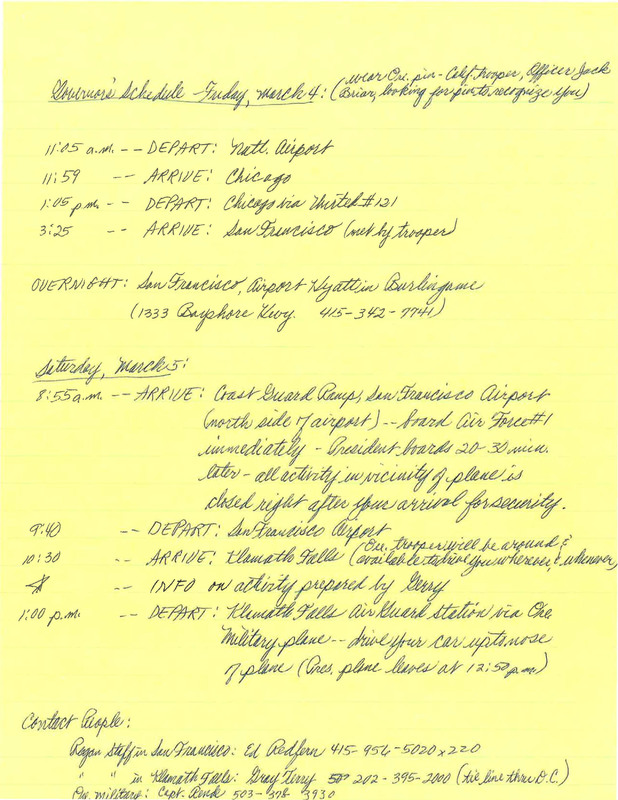 wear Ore. pin - Calif. trooper, Officer Jack
Governor's Schedule - Friday, March 4: (Briar, looking for pin to recognize you)
11:05 a.m. -- DEPART: Natl. Airport
11:59 -- ARRIVE: Chicago
1:05 p.m. -- DEPART: Chicago via United #131
3:25 -- ARRIVE: San Francisco (met by trooper)
OVERNIGHT: San Francisco, Airport Hyatt in Burlingame
(1333 Bayshore Hwy. 415-342-7741)
Saturday, March 5:
8:55 a.m. -- ARRIVE: Coast Guard Ramp, San Francisco Airport
(north side of airport) -- board Air Force #1
immediately - President boards 20-30 min.
later - all activity in vicinity of plane is
closed right after your arrival for security.
9:40 -- DEPART: San Francisco Airport
(Ore. trooper will be around &
10:30 -- ARRIVE: Klamath Falls available to drive you wherever, & whenever)
-- INFO on activity prepared by Gerry
1:00 p.m. -- DEPART: Klamath Falls Air Guard Station via Ore.
Military plane -- drive your car up to nose
of plane (Pres. plane leaves at 12:50 p.m.)
Contact People:
Regan Staff in San Francisco: Ed Redfern 415-956-5020 x 220
" " in Klamath Falls: Gray Terry 202-395-2000 (tie line thru D.C.)
Military: Capt. 503-378-3930